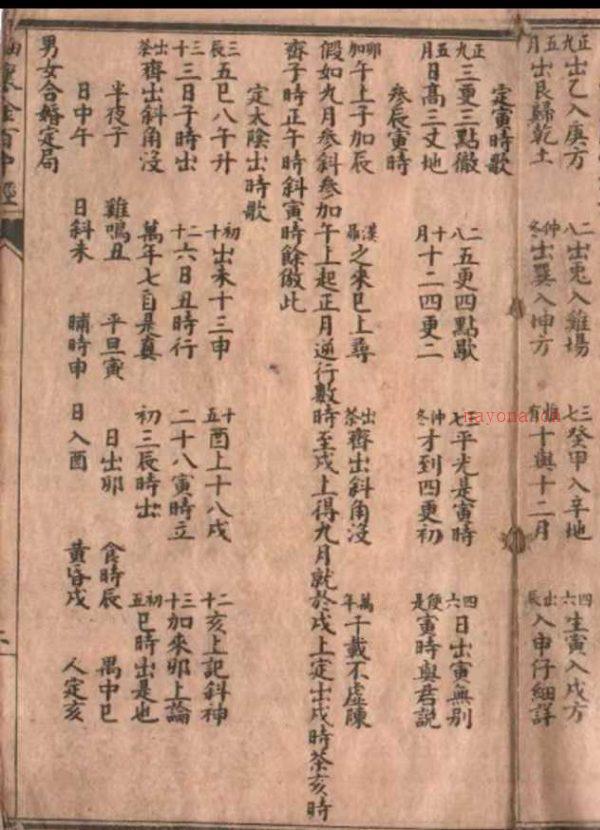 正九出乙入庚方　二八出兎入雞場　三七癸甲入辛地　四六生寅入戌方
五月出艮歸乾土　仲冬出巽入坤方　惟有十與十二月　出辰入申仔細詳
定寅時歌
正九三更三點徹　二八五更四點歇　七平光是寅時　四六日出寅無別
五月日高三丈地　十月十二四更二　仲冬才到四更初　便是寅時與君說
參辰寅時
卯加午上子加辰　漢聶之來巳上尋　出茶齊出斜角沒　萬年千載不虛陳
假如九月參斜參加午上起正月逆行數時至戌上得九月就於戌上定出戌時茶亥時
齊子時正午時斜寅時餘倣此
定太陰出時歌
三辰五巳八午升　初十出未十三申　十五酉上十八戌　二十亥上記斜神
三十三日子時出　二十六日丑時行　二十八寅時立　三十加來卯上論
出茶齊出斜角沒　萬年七百是真　初三辰時出　初五巳時出是也
半夜子　雞鳴丑　平旦寅　日出卯　食時辰　禺中巳
日中午　日斜未　晡時申　日入酉　黃昏戌　人定亥
男女合婚定局
金百中經
nayona.cn